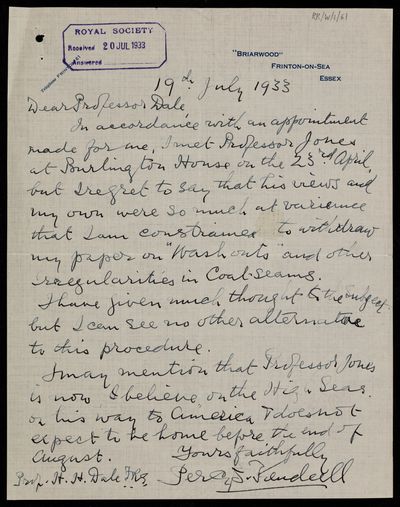 RR/W/1/61
ROYAL SOCIETY
Received 20 JUL 1933
Answered
"BRIARWOOD"
FRINTON-ON-SEA
ESSEX
19th July 1933
Dear Professor Dale
In accordance with an appointment
made for me, I met Professor Jones
at Burlington House on the 23rd April,
but I regret to say that his views and
my own were so much at variance
that I am constrained to withdraw
my paper on "Washouts" and other
irregularities in Coal Seams.
I have given much thought to the subject
but I can see no other alternative
to this procedure.
I may mention that Professor Jones
is now I believe, on the High Seas.
on his way to America & does not
expect to be home before the end of
August. Yours faithfully
Percy F. Kendall
Prof. H. H. Dale FRS